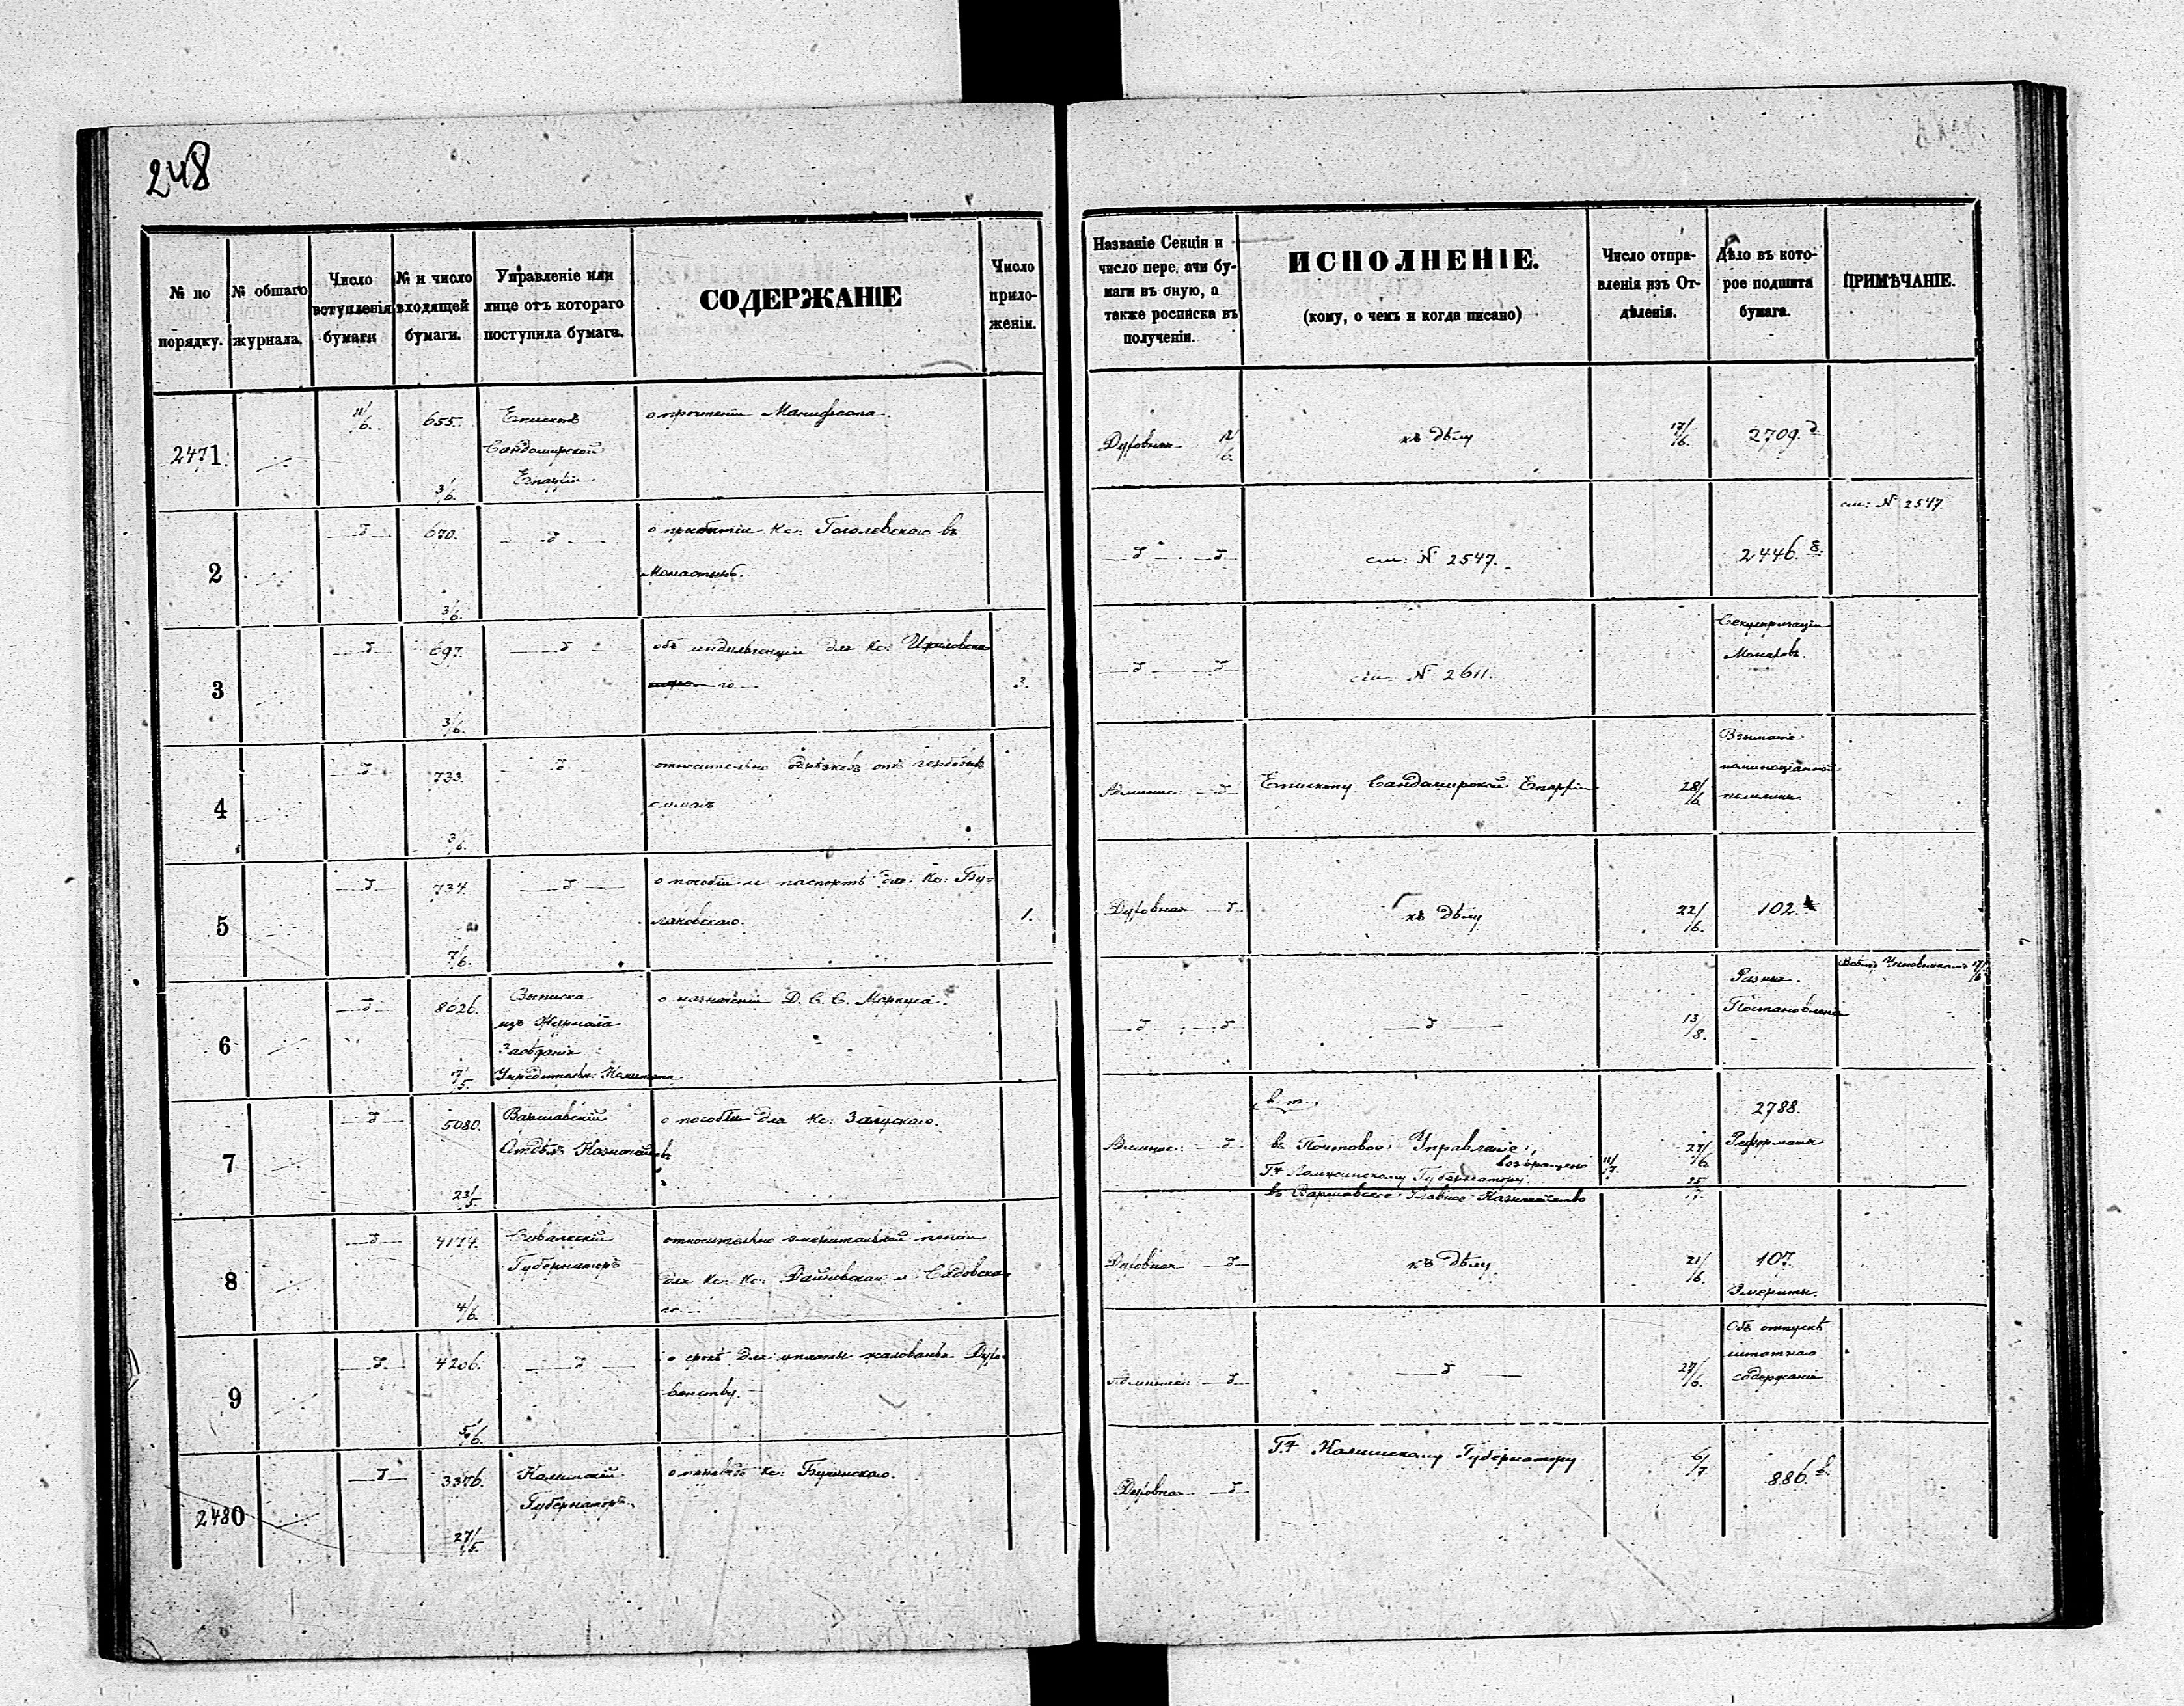 248
№ по порядку.
№ общаго журнала.
Число вступленія бумаги
№ и число входящей бумаги.
Управленіе или лице отъ котораго поступила бумага.
СОДЕРЖАНІЕ
Число приложеніи.
Названіе Секціи и число пере, ачи бумаги въ оную, а также росписка въ полученіи.
ИСПОЛНЕНІЕ.
(кому, о чемъ и когда писано)
Число отправленія изъ Отдѣленія.
Дѣло въ которое подшита бумага.
ПРИМѢЧАНІЕ.
2471.
11/6.
655.
3/6.
Епископъ
Сандомирской
Епархіи.
о прочтеніи Манифеста.
Духовная 12/6
къ дѣлу
17/6.
2709.
2
670.
3/6.
о прибытіи Кс: Гоголевскаго въ
Монастырь.
см: № 2547.
2446.
см: № 2547.
3
697.
3/6.
объ индульгенціи для Кс:
го.
2.
см: № 2611.
Секуляризація
Монаховъ.
4
733.
3/6.
относительно
Админис:
Епископу Сандомирской Епархіи
28/6.
Взыманіе
5
734.
7/6.
о пособіи и паспортѣ для Кс: Бу-
лаковскаго.
1.
Духовная
къ дѣлу
22/6.
102.
6
8026.
17/5.
Выписка
изъ Журнала
Засѣданія
Учредительн: Комитета
о назначеніи Д. С. С. Маркуса.
13/8.
Разныя.
Постановленія
17/6
7
5080.
23/5.
Варшавскій
Отдѣл: Казначействъ
о пособіи для Кс: Залускаго.
Админис:
въ Почтовое Управленіе,
возвращено 11/7.
Г. Ломжинскому Губернатору
въ Варшавское Главное Казначейство
27/6
25/7.
2788.
Реформаты
8
4174.
4/6.
Сувалкскій
Губернаторъ
относительно эмеритальной пенсіи
для Кс: Кс: Дайновскаго и Садовска-
го.
Духовная
къ дѣлу
21/6.
107.
Эмериты.
9
4206.
5/6.
о срокѣ для уплаты жалованья Духо-
венству.
Админис:
27/6.
Объ отпускѣ
штатнаго
содержанія
2480
3376.
27/5.
Калишскій
Губернаторъ.
Кс:
Духовная
Г. Калишскому Губернатору
6/7
886.